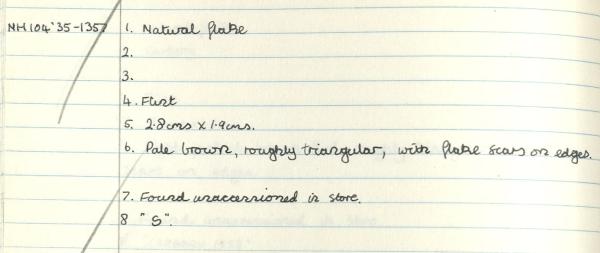 NH104'35-1357 1. Natural flake
2.
3.
4. Flint
5. 2.8cms x 1.9cms.
6. Pale brown, roughly triangular, with flake scars on edges.
7. Found unaccessioned in store.
8 "S".